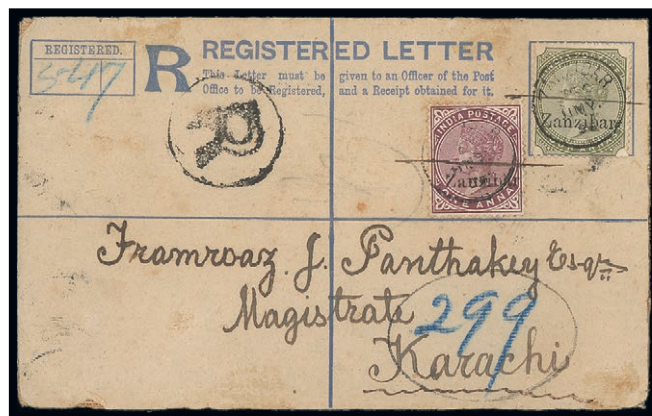 REGISTERED.
R
REGISTERED LETTER
This Letter must be given to an Officer of the Post
Office to be Registered, and a Receipt obtained for it.
Zanzibar
INDIA POSTAGE
ONE ANNA
Framroaz J. Panthakey Esqre
Magistrate
299
Karachi